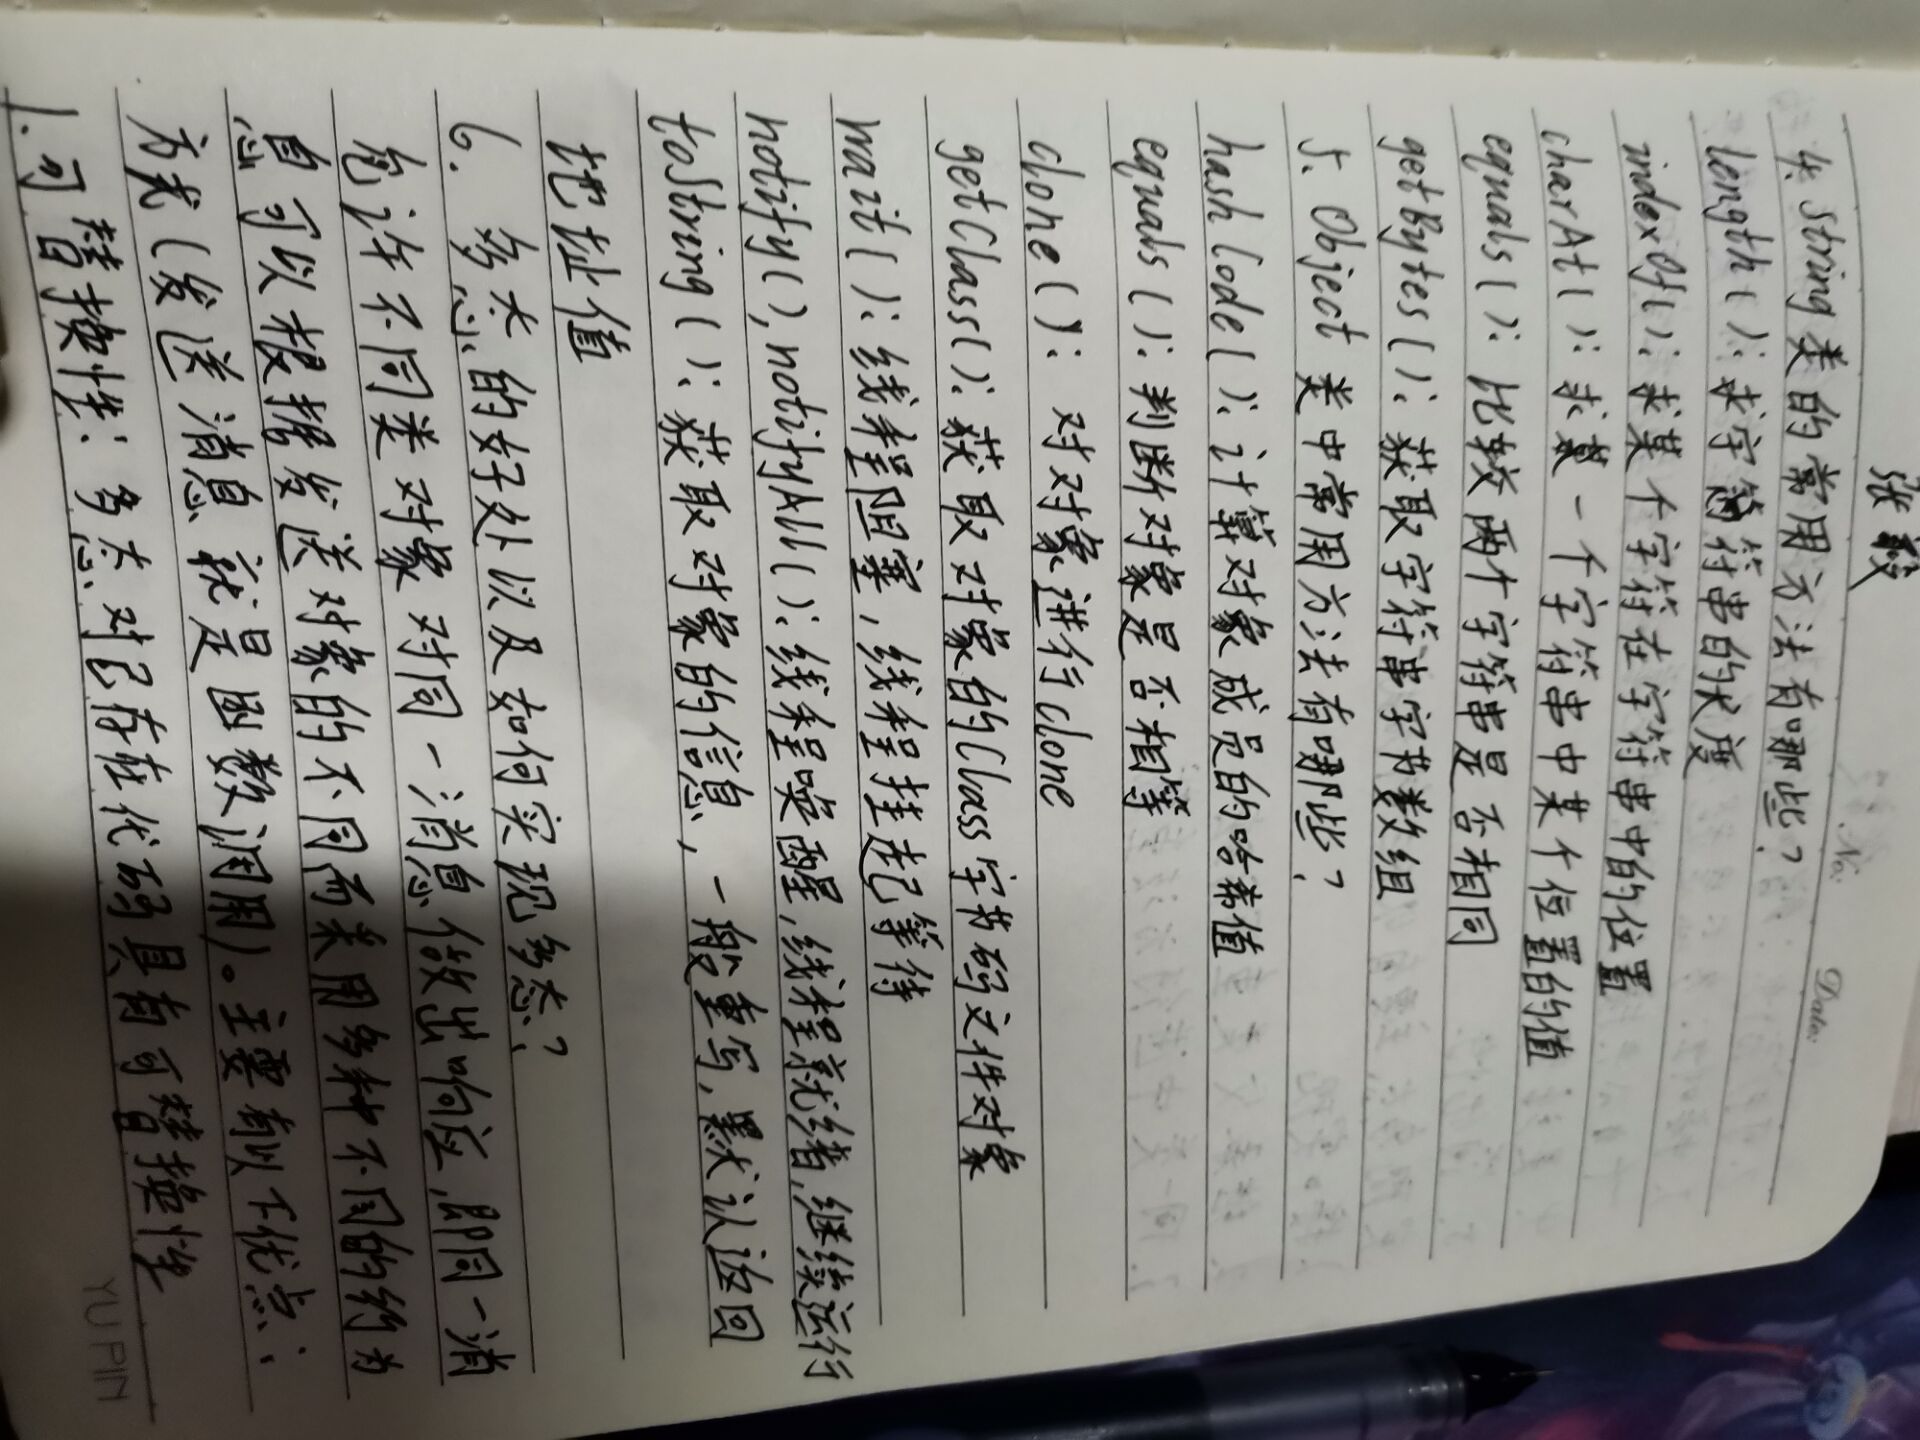 张毅
No.
Date.
4. String类的常用方法有哪些?
length(): 求字符串的长度
indexOf(): 求某个字符在字符串中的位置
charAt(): 求某一个字符串中某个位置的值
equals(): 比较两个字符串是否相同
getBytes(): 获取字符串字节数组
5. Object类中常用方法有哪些?
hashCode(): 计算对象成员的哈希值
equals(): 判断对象是否相等
clone(): 对对象进行clone
getClass(): 获取对象的Class字节码文件对象
wait(): 线程阻塞, 线程挂起等待
notify(), notifyAll(): 线程唤醒, 线程就绪, 继续运行
toString(): 获取对象的信息, 一般重写, 默认返回
地址值
6. 多态的好处以及如何实现多态?
允许不同类对象对同一消息做出响应, 即同一消
息可以根据发送对象的不同而采用多种不同的行为
方式(发送消息就是函数调用)。主要有以下优点:
1. 可替换性: 多态对已存在代码具有可替换性
YUPIN